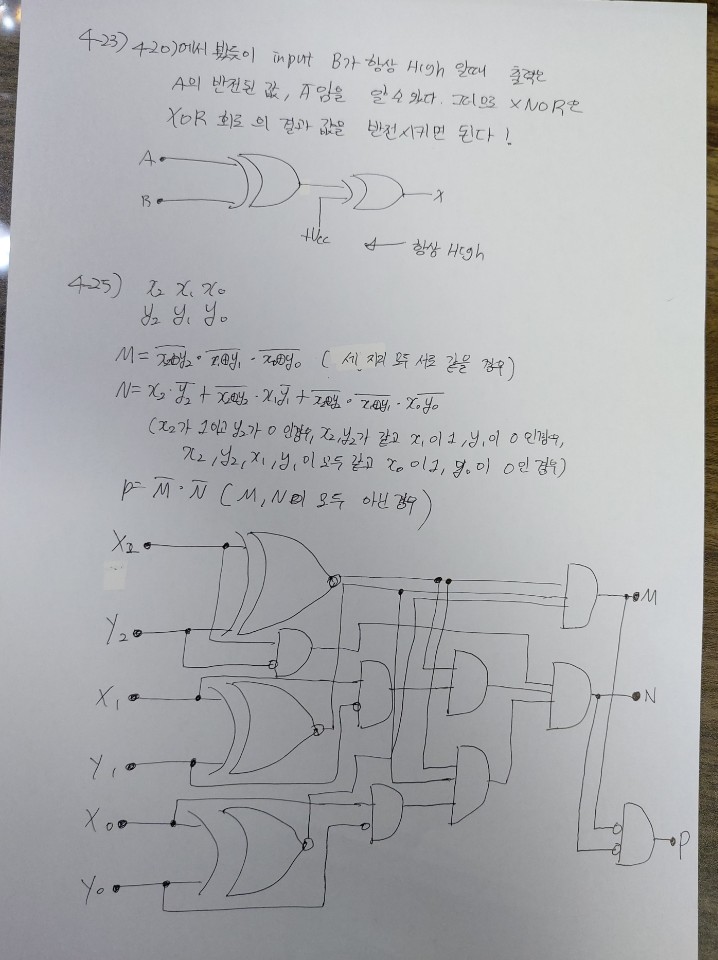 4-23) 4-20)에서 봤듯이 input B가 항상 High 일때 출력은
A의 반전된 값, A̅ 임을 알 수 있다. 그러므로 XNOR은
XOR 회로의 결과 값을 반전시키면 된다!
A
B
X
+Vcc
항상 High
4-25) x₂ x₁ x₀
y₂ y₁ y₀
M = \overline{x₂⊕y₂} · \overline{x₁⊕y₁} · \overline{x₀⊕y₀} ( 세 자리 모두 서로 같을 경우)
N = x₂ · \overline{y₂} + \overline{x₂⊕y₂} · x₁\overline{y₁} + \overline{x₂⊕y₂} · \overline{x₁⊕y₁} · x₀\overline{y₀}
(x₂가 1이고 y₂가 0 인경우, x₂, y₂가 같고 x₁이 1, y₁이 0 인경우,
x₂, y₂, x₁, y₁이 모두 같고 x₀이 1, y₀이 0인 경우)
P = \overline{M} · \overline{N} ( M, N이 모두 아닌 경우)
X₂
M
Y₂
X₁
N
Y₁
X₀
P
Y₀